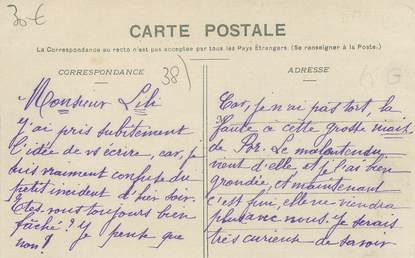 30€
CARTE POSTALE
La Correspondance au recto n'est pas acceptée par tous les Pays Étrangers. (Se renseigner à la Poste.)
CORRESPONDANCE
38)
ADRESSE
Monsieur Lili
J'ai pris subitement
l'idée de vs écrire, car, je
suis vraiment confuse du
petit incident d'hier soir.
Êtes vous toujours bien
fâché? Je pense que
non!
Car, je n'ai pas tort, la
faute à cette grosse
de Le malentendu
vient d'elle, et je l'ai bien
grondée, et maintenant
c'est fini, elle ne viendra
plus avec nous. Je serais
très curieux de savoir